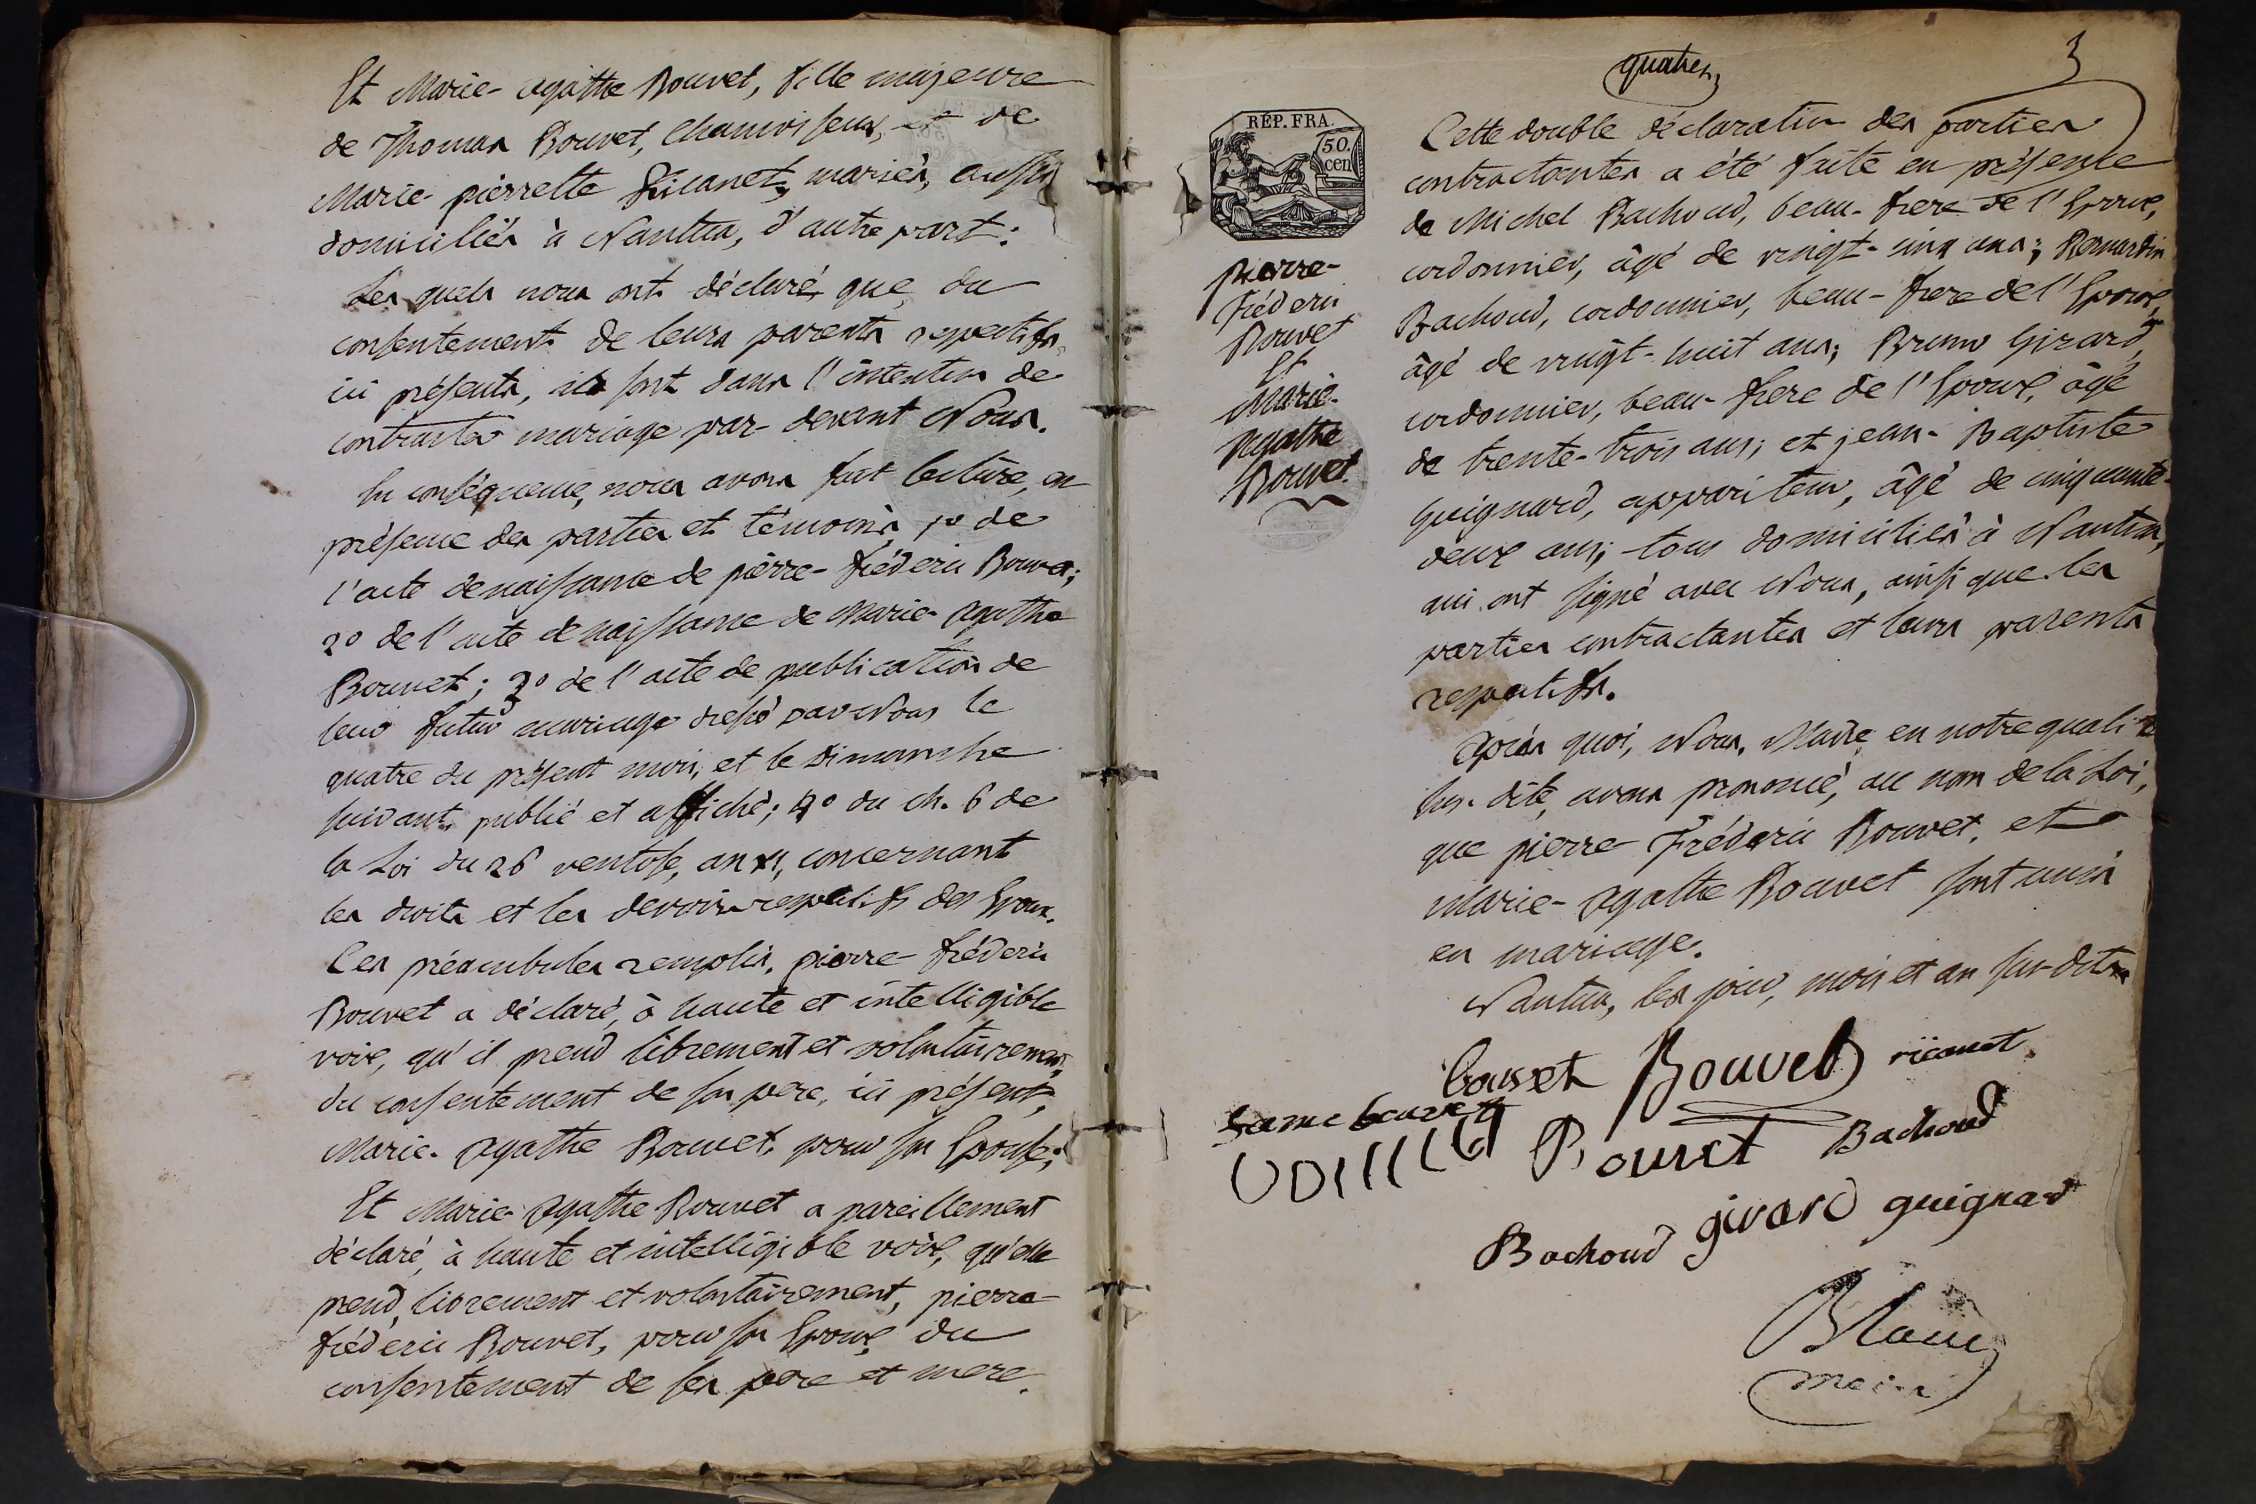 Et Marie-agathe Bouvet, fille majeure
de Thomas Bouvet, Chamoiseur, et de
Marie-pierrette Ricanet, mariés, aussi
domiciliés à Nantua, d'autre part:
Les quels nous ont déclaré que, du
consentement de leurs parents respectifs,
ici présents, ils sont dans l'intention de
contracter mariage par-devant Nous.
En conséquence, nous avons fait lecture, en
présence des parties et témoins, 1º de
l'acte de naissance de pierre-fréderic Bouvet;
2º de l'acte de naissance de Marie-agathe
Bouvet; 3º de l'acte de publication de
leur futur mariage dressé par Nous le
quatre du présent mois, et le dimanche
suivant publié et affiché; 4º du ch. 6 de
la Loi du 26 ventose, an XI, concernant
les droits et les devoirs respectifs des Epoux.
Ces préambules remplis, pierre-fréderic
Bouvet a déclaré, à haute et intelligible
voix, qu'il prend librement et volontairement,
du consentement de son pere, ici présent,
Marie-agathe Bouvet, pour son Epouse;
Et Marie-agathe Bouvet a pareillement
déclaré, à haute et intelligible voix, qu'elle
prend, librement et volontairement, pierre-
fréderic Bouvet, pour son Epoux, du
consentement de ses pere et mere.
quatre
3
RÉP. FRA.
50.
cen
pierre-
fréderic
Bouvet
Et
Marie-
agathe
Bouvet.
Cette double déclaration des parties
contractantes a été faite en présence
de Michel Bachoud, beau-frere de l'Epoux,
cordonnier, âgé de vingt-cinq ans; Bernardin
Bachoud, cordonnier, beau-frere de l'Epoux,
âgé de vingt-huit ans; Bruno Girard,
cordonnier, beau-frere de l'Epoux, âgé
de trente-trois ans; et jean-Baptiste
Guignard, appariteur, âgé de cinquante-
deux ans; tous domiciliés à Nantua,
qui ont signé avec Nous, ainsi que les
parties contractantes et leurs parents
respectifs.
Après quoi, Nous, Maire, en notre qualité
sus-dite, avons prononcé, au nom de la Loi,
que pierre-Fréderic Bouvet, et
Marie-agathe Bouvet sont unis
en mariage.
Nantua, les jour, mois et an sus-dits
Bouvet Bouvet ricanet
bouvet Bouvet Bachoud
Bachoud girard guignard
Blanc
maire